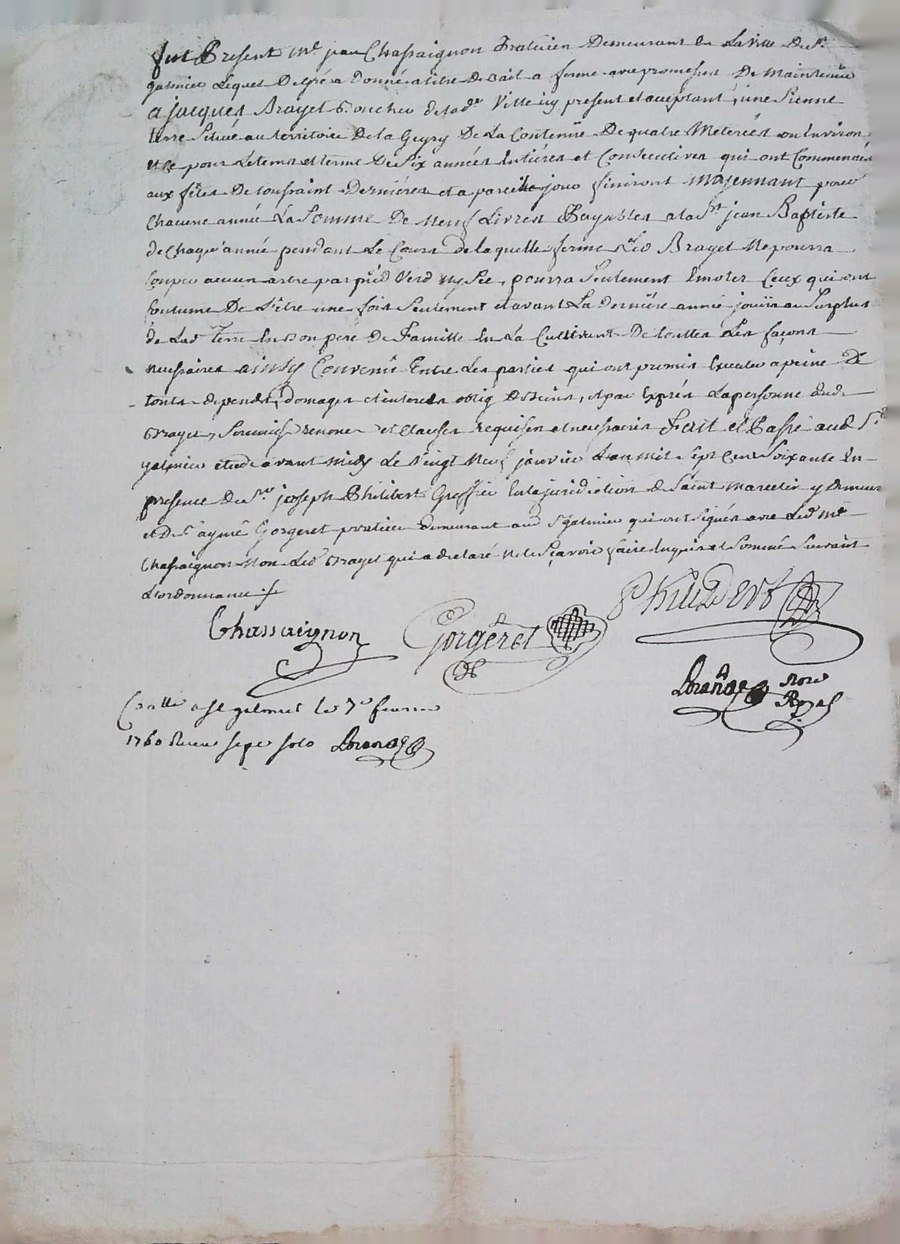 fut Present Me jean Chassaignon Praticien Demeurant En La Ville De St
galmier Lequel De gré a Donné a titre De bail a ferme avec promesses De Maintenir
a jacques Brayet Boucher de lade Ville icy present et aceptant, une Sienne
terre Située au territoire De la Geyry De La Contenue De quatre Meterées ou Environ,
et ce pour Le tems et terme De Six années Entières et Consecutives qui ont Commencé
aux fêtes De toussaint Dernières et a pareille jour finiront Mojennant pour
Chacune année La Somme De Neuf Livres Payables a la St jean Baptiste
de Chaqe année pendant Le Cours de laquelle ferme Led Brayet Ne pourra
Couper aucun arbre par pied Verd ny Sec, pourra Seulement Emoter Ceux qui ont
Coutume De L'être une fois Seulement et avant La Dernière année jouira au Surplus
de Lade Terre En bon pere De Famille En La Cultivant De touttes Les façons
necessaires ainsy Convenu Entre Les parties qui ont promis Executer a peine De
touts depends, Domages et interets oblig De biens, et par Exprés La personne dud
Brayet, Soumis renonc et Clauses requises et necessaires Fait et Passé aud St
galmier etude avant midy Le Vingt Neuf janvier L'an mil Sept Cent Soixante En
presence De Sr joseph Philibert Greffier En la juridiction de Saint Marcelin y Demeur
et De Sr aymé Gorgeret praticien demeurant aud St galmier qui ont Signés avec Led Me
Chassaignon Non Led Brayet qui a declaré Ne le Sçavoir faire Enquis et Sommé Suivant
L'ordonnance
Chassaignon Gorgeret Philibert
Lorande Nore Royal
Conllé a St galmier le 7e fevrier
1760 Receu sept sols Lorande